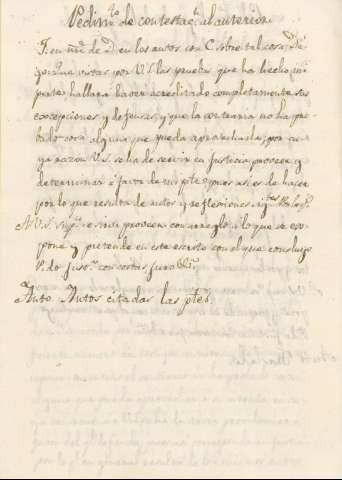 Pedim.to de contestac.n al anterior.
F. en nre de D. en los autos con C. sobre tal cosa, Di
go: que vistas por V.S. las pruebas que ha hecho mi
parte hallara haver acreditado completamente sus
excepciones, y defensas, y que la contraria no ha pro
bado cosa alguna que pueda aprovecharla; por cu
ya razon V.S. se ha de servir en Justicia proveer y
determinar à favor de mi pte; pues asi es de hacer
por lo que resulta de autos y reflexiones sig.tes
A V.S. sup.co se sirva proveer con arreglo à lo que se ex
pone y pretende en este escrito con el que concluyo
P.do Jus.a con costas juro &.a
Auto. Autos citadas las ptes.